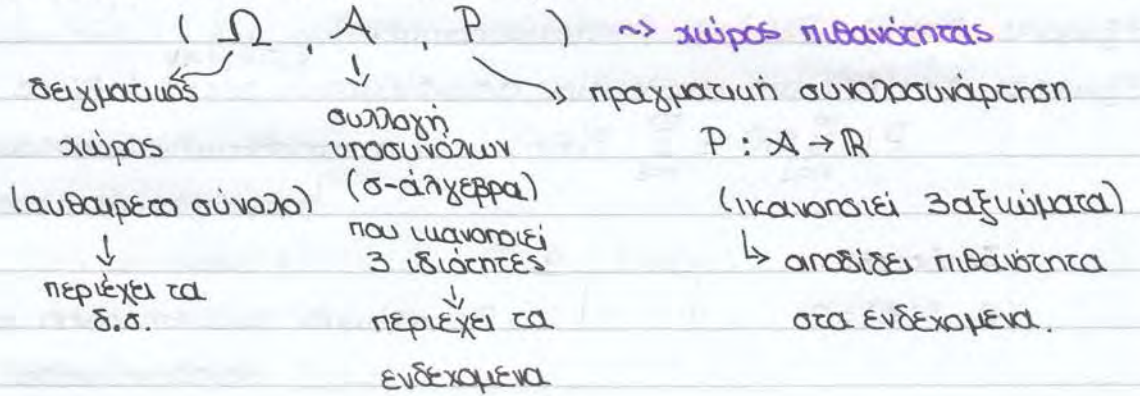 ( Ω , A , P ) ~> χώρος πιθανότητας
δειγματικός
χώρος
(αυθαίρετο σύνολο)
↓
περιέχει τα
δ.σ.
↓
συλλογή
υποσυνόλων
(σ-άλγεβρα)
που ικανοποιεί
3 ιδιότητες
↓
περιέχει τα
ενδεχόμενα
πραγματική συνολοσυνάρτηση
P : A → ℝ
(ικανοποιεί 3 αξιώματα)
↳ αποδίδει πιθανότητα
στα ενδεχόμενα.